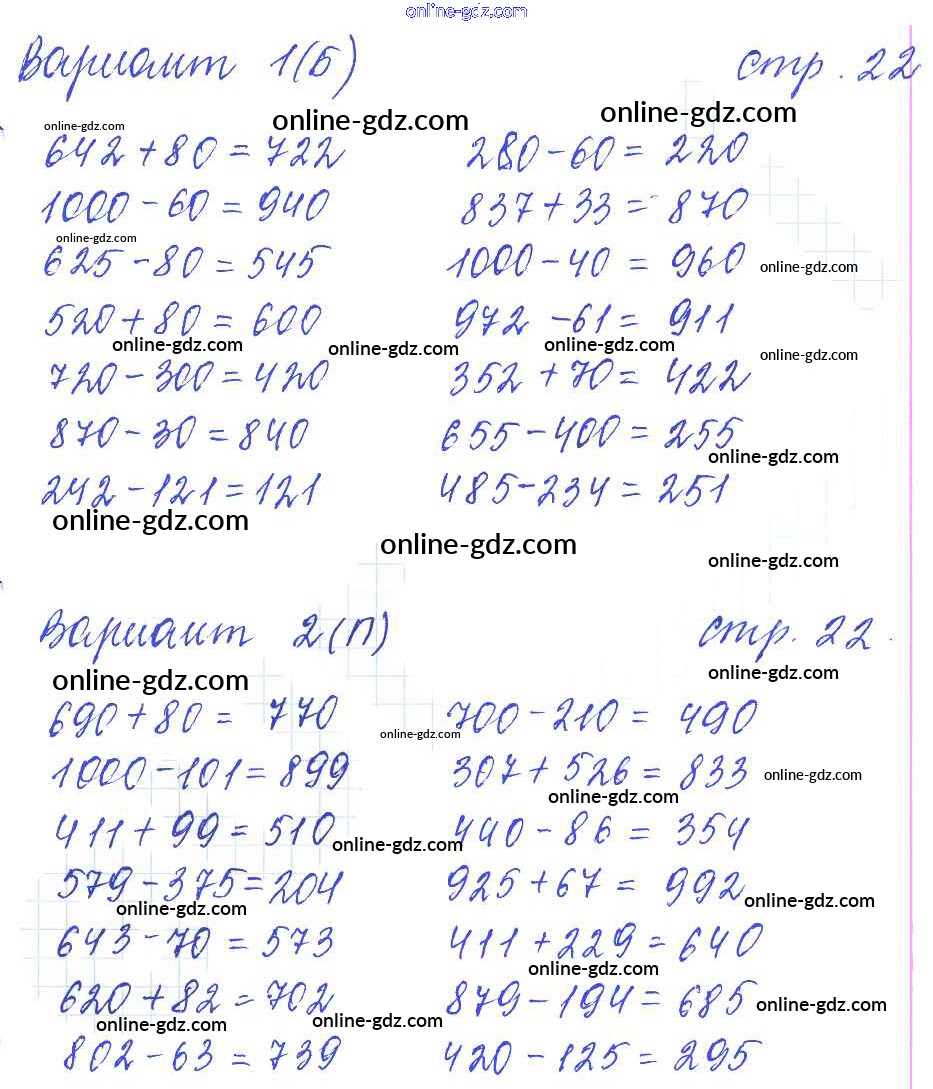 online-gdz.com
Вариант 1(Б) стр. 22
online-gdz.com online-gdz.com online-gdz.com
642 + 80 = 722 280 - 60 = 220
1000 - 60 = 940 837 + 33 = 870
online-gdz.com
625 - 80 = 545 1000 - 40 = 960 online-gdz.com
520 + 80 = 600 972 - 61 = 911
online-gdz.com online-gdz.com online-gdz.com online-gdz.com
720 - 300 = 420 352 + 70 = 422
870 - 30 = 840 655 - 400 = 255
online-gdz.com
242 - 121 = 121 485 - 234 = 251
online-gdz.com
online-gdz.com
online-gdz.com
Вариант 2(П) стр. 22
online-gdz.com online-gdz.com
690 + 80 = 770 700 - 210 = 490
online-gdz.com
1000 - 101 = 899 307 + 526 = 833 online-gdz.com
online-gdz.com
411 + 99 = 510 440 - 86 = 354
online-gdz.com
579 - 375 = 204 925 + 67 = 992
online-gdz.com online-gdz.com
643 - 70 = 573 411 + 229 = 640
online-gdz.com
620 + 82 = 702 879 - 194 = 685 online-gdz.com
online-gdz.com online-gdz.com
802 - 63 = 739 420 - 125 = 295